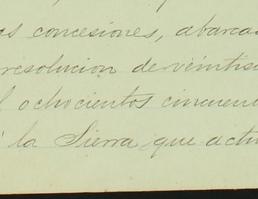 as concesiones, abarca
resolucion de veintise
l ochocientos cincuen
la Sierra que actu